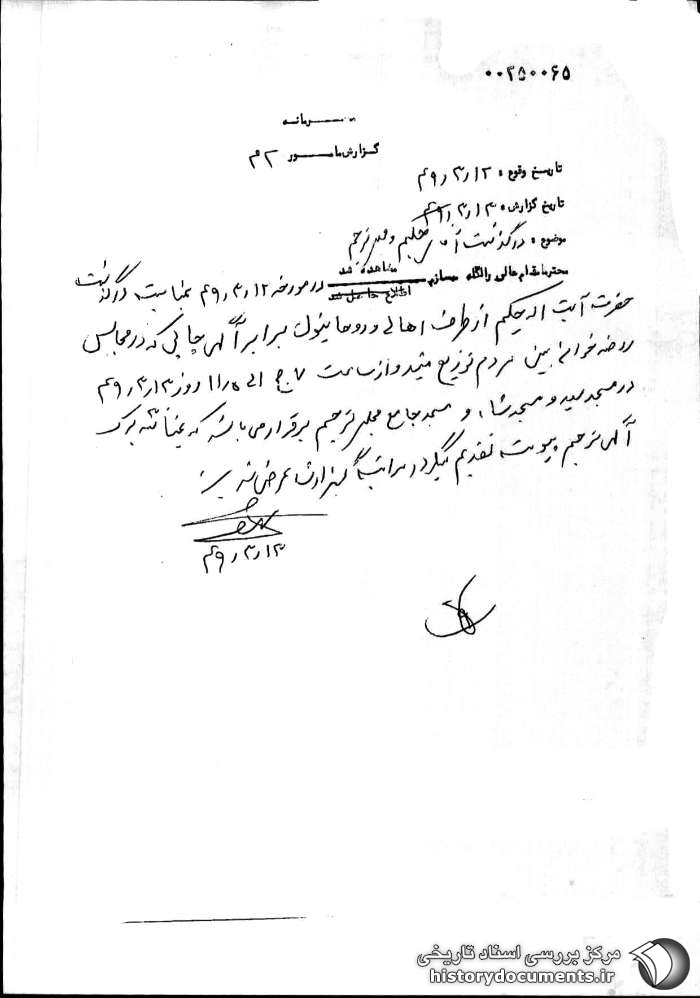 ۰۰۳۵۰۰۶۵
محرمانه
گزارش مامور ۲۰م
تاریخ وقوع : ۴۹٫۳٫۱۲
تاریخ گزارش : ۴۹٫۳٫۱۳
موضوع : درگذشت آقای حکیم و مجلس ترحیم
محترما بمقام عالی را آگاه میسازم مشاهده شد اطلاع حاصل شد در مورخه ۴۹٫۳٫۱۲ بمناسبت درگذشت
حضرت آیت اله حکیم از طرف اهالی و روحانیون برابر آگهی چاپی که در مجالس
روضه خوانی بین مردم توزیع میشد و از ساعت ۷ الی ۱۱ روز ۴۹٫۳٫۱۳
در مسجد سید و مسجد شاه و مسجد جامع مجلس ترحیم برقرار میباشد که عینا یک برگ
آگهی ترحیم پیوست تقدیم میگردد مراتب گزارشا عرض شد
۴۹٫۳٫۱۳
مرکز بررسی اسناد تاریخی
historydocuments.ir